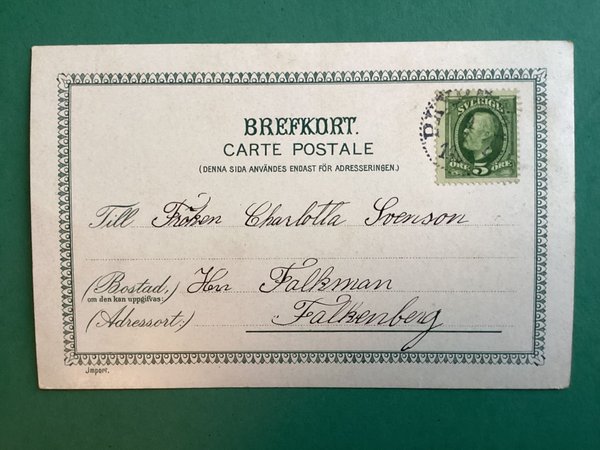 BREFKORT.
CARTE POSTALE
(DENNA SIDA ANVÄNDES ENDAST FÖR ADRESSERINGEN.)
SVERIGE
ÖRE 5 ÖRE
Till Fröken Charlotta Svenson
(Bostad,) Hr Falkman
om den kan uppgifvas:
(Adressort:) Falkenberg
Import.